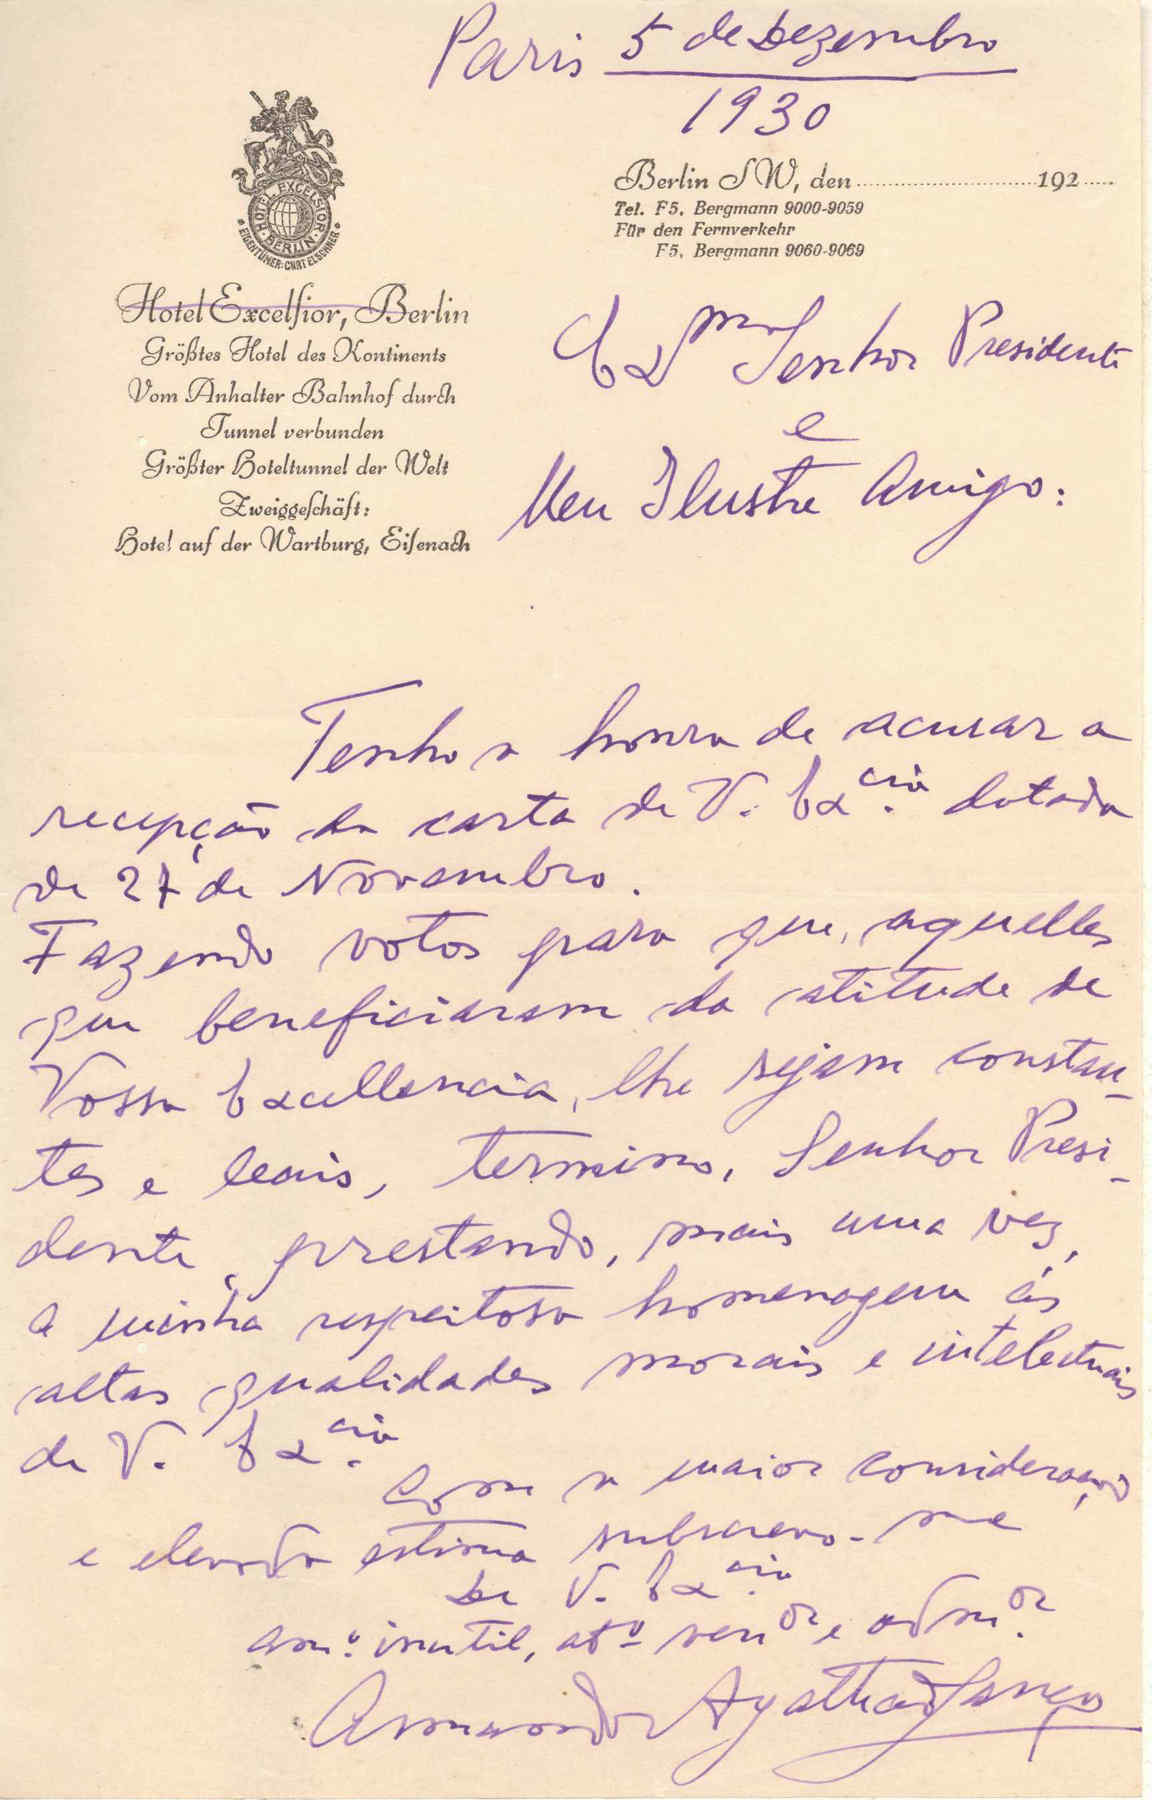 Paris 5 de Dezembro
1930
HOTEL EXCELSIOR
BERLIN
EIGENTÜMER: CURT ELSCHNER
Berlin SW, den 192
Tel. F5, Bergmann 9000-9059
Für den Fernverkehr
F5, Bergmann 9060-9069
Hotel Excelſior, Berlin
Größtes Hotel des Kontinents
Vom Anhalter Bahnhof durch
Tunnel verbunden
Größter Hoteltunnel der Welt
Zweiggeſchäft:
Hotel auf der Wartburg, Eiſenach
Exmo Senhor Presidente
e
Meu Ilustre Amigo:
Tenho a honra de acusar a
recepção da carta de V. Excia. datada
de 27 de Novembro.
Fazendo votos para que, aquelles
que beneficiaram da atitude de
Vossa Excellencia, lhe sejam constan-
tes e leais, termino, Senhor Presi-
dente, prestando, mais uma vez,
a minha respeitosa homenagem ás
altas qualidades morais e intelectuais
de V. Excia.
Com a maior consideração
e elevada estima subscrevo-me
De V. Excia.
amo. inutil, ato. venor e admor.
Armando Agatão Lança